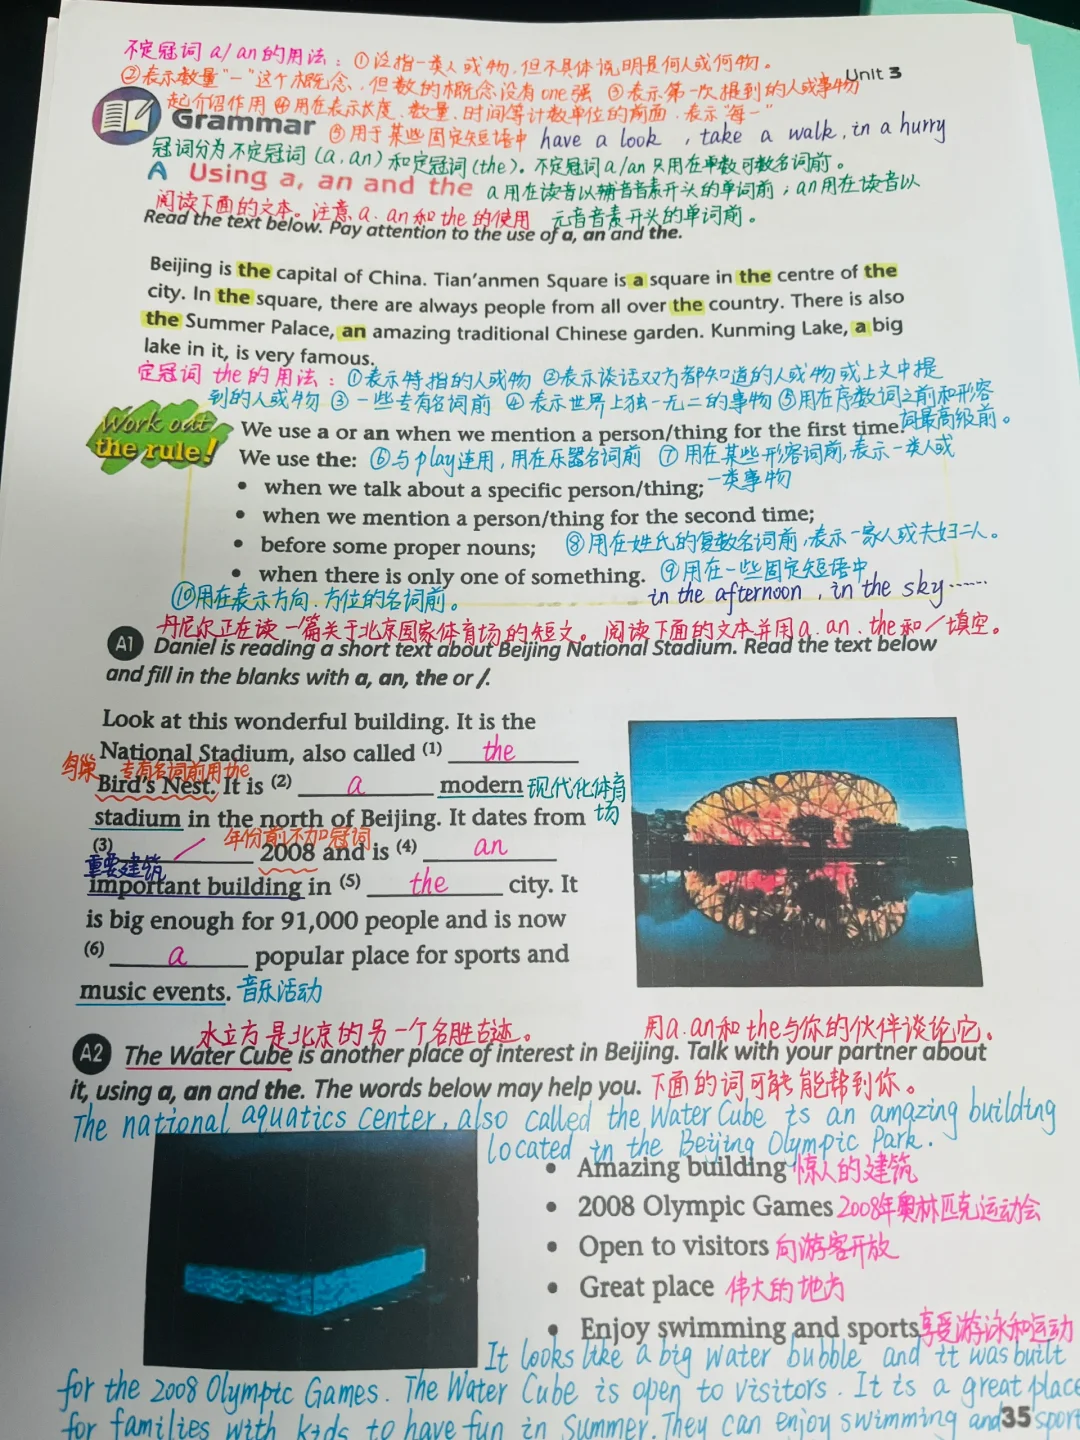 不定冠词 a/an的用法：①泛指一类人或物，但不具体说明是何人或何物。
②表示数量"一"这个概念，但数的概念没有one强 ③表示第一次提到的人或事物
Unit 3
起介绍作用 ④用在表示长度、数量、时间等计数单位的前面，表示"每一"
Grammar
⑤用于某些固定短语中 have a look ，take a walk，in a hurry
冠词分为不定冠词（a.an）和定冠词（the）。不定冠词a/an只用在单数可数名词前。
A Using a, an and the
a用在读音以辅音音素开头的单词前；an用在读音以
阅读下面的文本。注意a.an和the的使用
元音音素开头的单词前。
Read the text below. Pay attention to the use of a, an and the.
Beijing is the capital of China. Tian'anmen Square is a square in the centre of the
city. In the square, there are always people from all over the country. There is also
the Summer Palace, an amazing traditional Chinese garden. Kunming Lake, a big
lake in it, is very famous.
定冠词 the的用法：①表示特指的人或物 ②表示谈话双方都知道的人或物或上文中提
到的人或物 ③一些专有名词前 ④表示世界上独一无二的事物 ⑤用在序数词之前和形容
词最高级前。
Work out
the rule!
We use a or an when we mention a person/thing for the first time.
We use the:
⑥与play连用，用在乐器名词前 ⑦用在某些形容词前，表示一类人或
一类事物
• when we talk about a specific person/thing;
• when we mention a person/thing for the second time;
• before some proper nouns;
⑧用在姓氏的复数名词前，表示一家人或夫妇二人。
• when there is only one of something.
⑨用在一些固定短语中
⑩用在表示方向、方位的名词前。
in the afternoon ，in the sky……
丹尼尔正在读一篇关于北京国家体育场的短文。阅读下面的文本并用a.an、the和/填空。
A1 Daniel is reading a short text about Beijing National Stadium. Read the text below
and fill in the blanks with a, an, the or /.
Look at this wonderful building. It is the
National Stadium, also called (1) the
鸟巢 专有名词前用the
Bird's Nest. It is (2) a modern 现代化体育
场
stadium in the north of Beijing. It dates from
年份前不加冠词
(3) / 2008 and is (4) an
重要建筑
important building in (5) the city. It
is big enough for 91,000 people and is now
(6) a popular place for sports and
music events. 音乐活动
水立方是北京的另一个名胜古迹。
用a.an和the与你的伙伴谈论它。
A2 The Water Cube is another place of interest in Beijing. Talk with your partner about
it, using a, an and the. The words below may help you. 下面的词可能能帮到你。
The national aquatics center, also called the Water Cube is an amazing building
located in the Beijing Olympic Park.
• Amazing building 惊人的建筑
• 2008 Olympic Games 2008年奥林匹克运动会
• Open to visitors 向游客开放
• Great place 伟大的地方
• Enjoy swimming and sports 享受游泳和运动
It looks like a big water bubble and it was built
for the 2008 Olympic Games. The Water Cube is open to visitors. It is a great place
for families with kids to have fun in Summer. They can enjoy swimming and sport
35